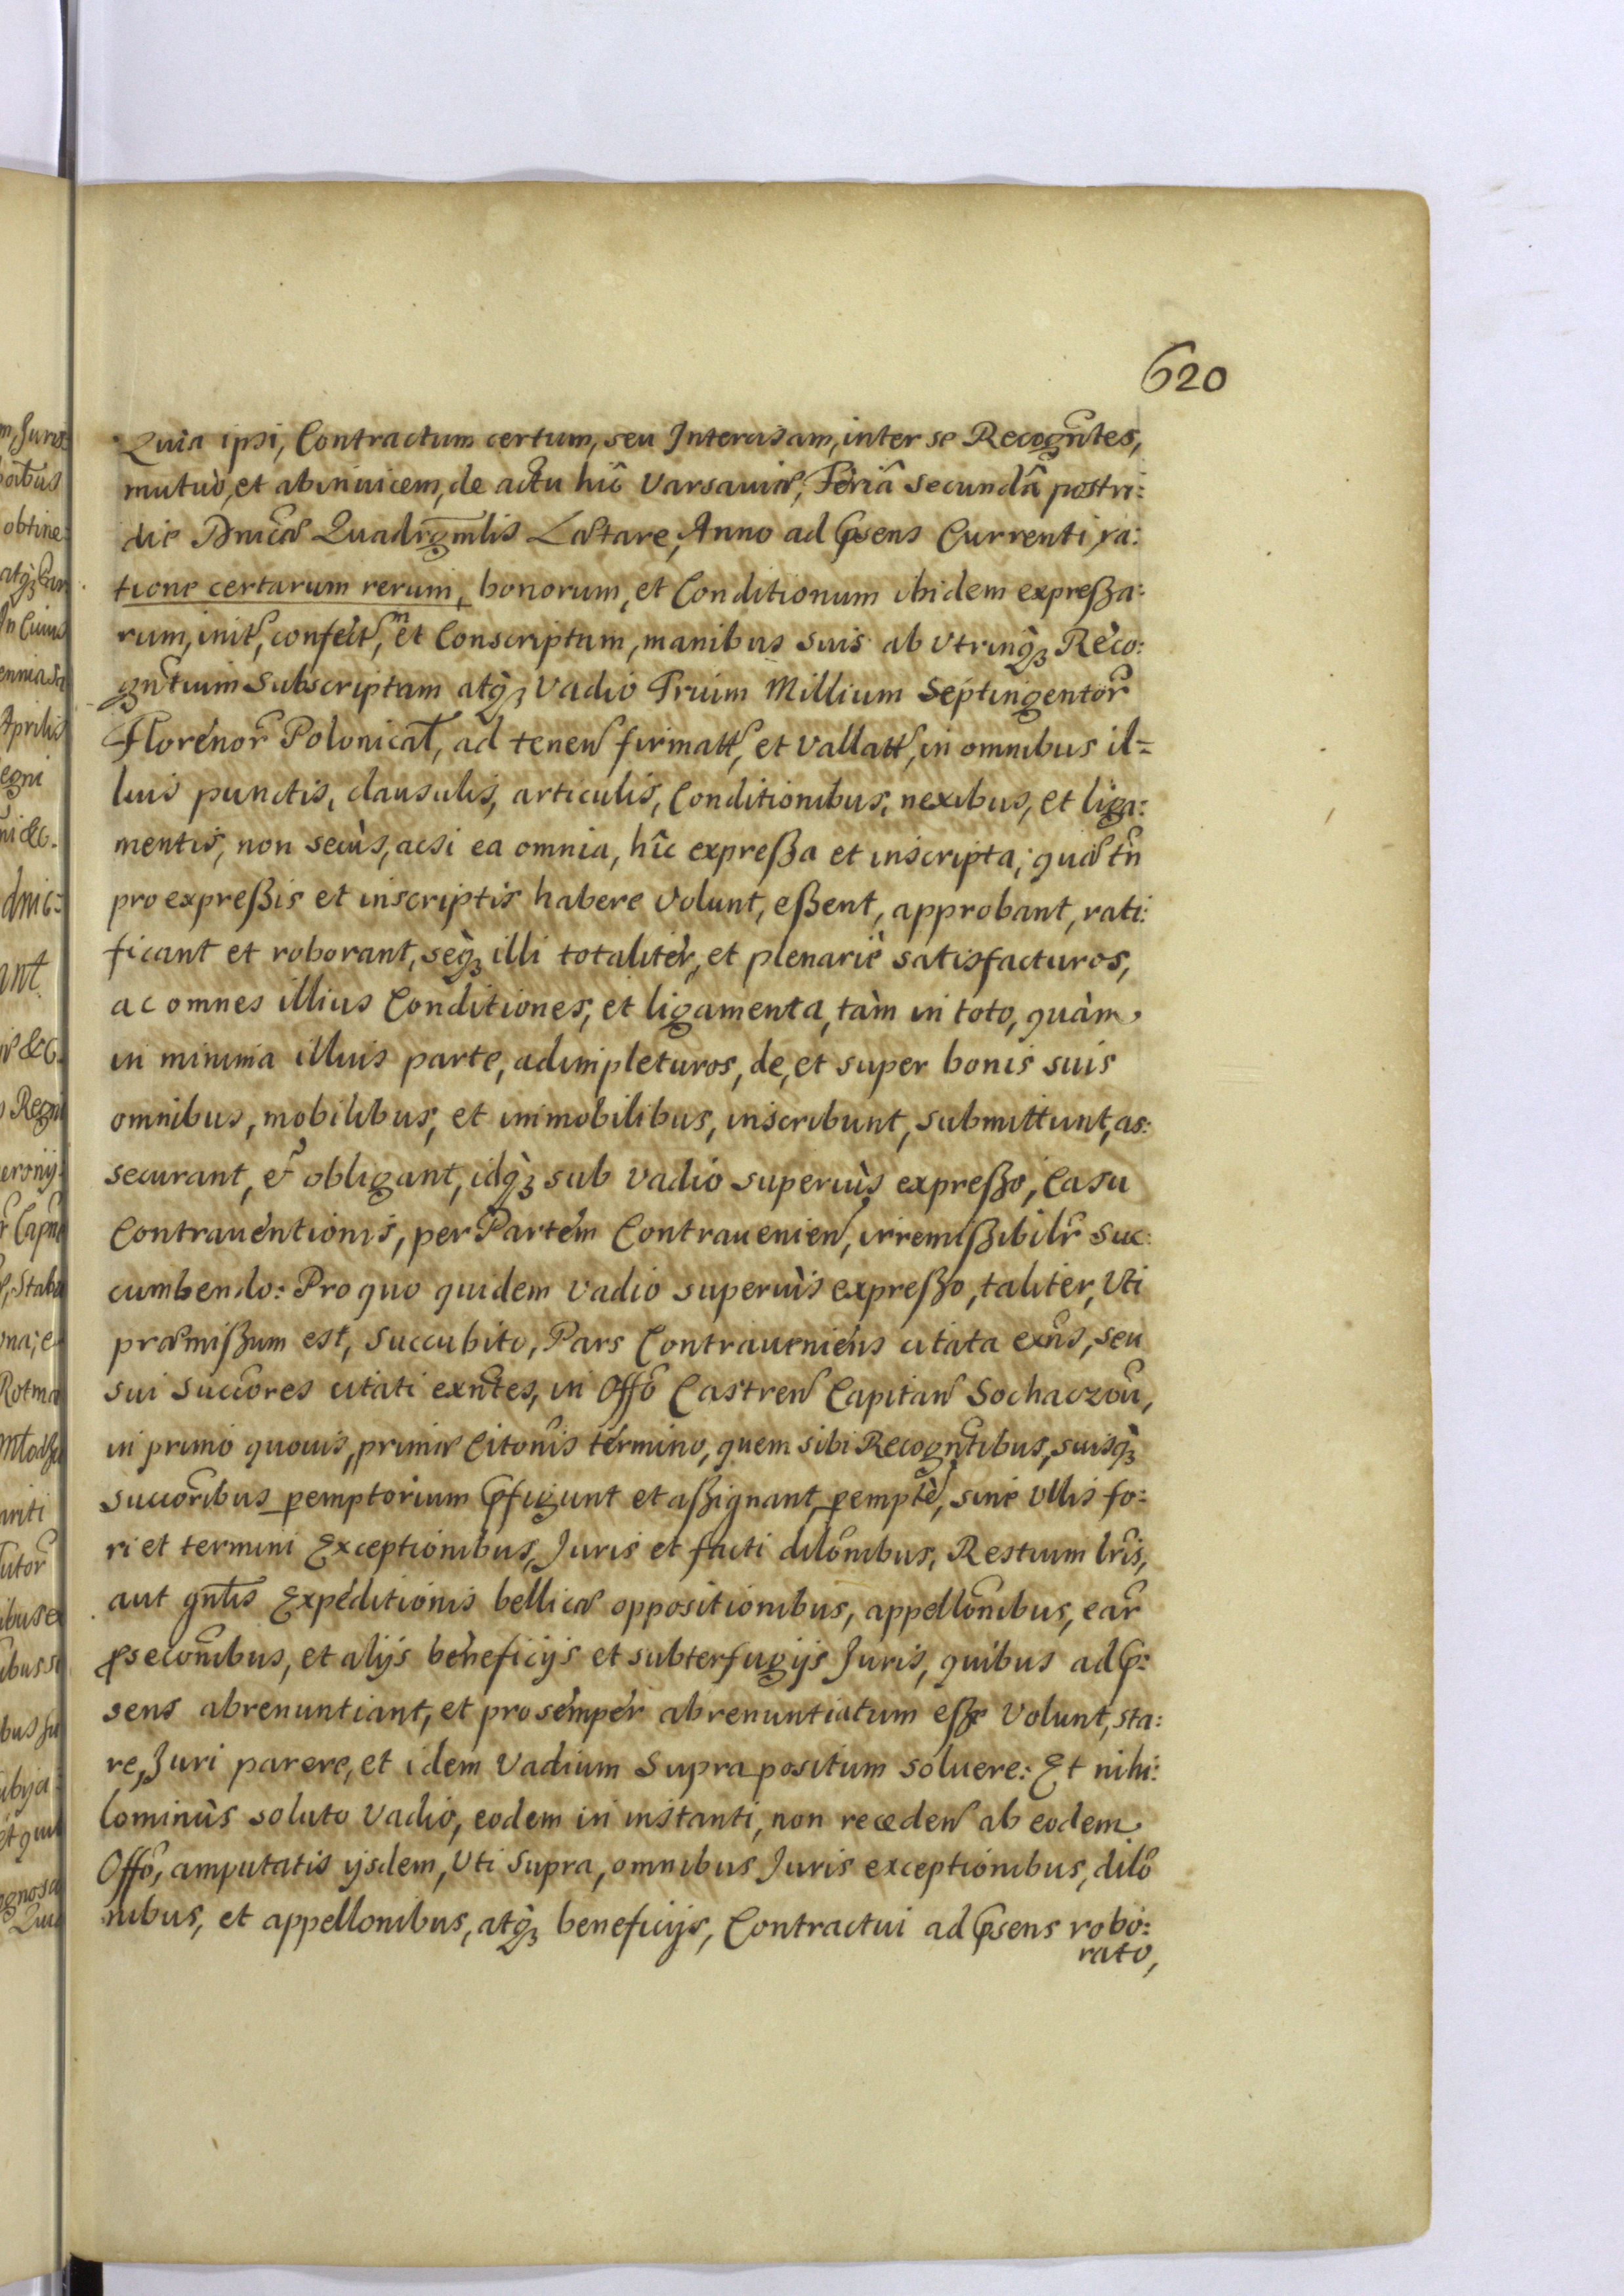 620
Quia ipsi, Contractum certum, seu Intercisam, inter se Recogn̄tes,
mutuò, et abinuicem, de actu hîc Varsauiæ, Feriâ secundâ postri:
die Dn̄icæ Quadrgm̄lis Lætare, Anno ad p̄sens Currenti ra:
tione certarum rerum, bonorum, et Conditionum ibidem expreßa:
rum, init̃, confect̃, et Conscriptam, manibus suis ab Vtrinq̀ꝫ Reco:
gn̄tium subscriptam atq̀ꝫ Vadio Trium Millium Septingentor̃
Florenor̃ Polonical̃, ad tenen̄ firmatt̃, et Vallatt̃, in omnibus il=
lius punctis, clausulis, articulis, Conditionibus, nexibus, et liga:
mentis, non secùs, acsi ea omnia, hîc expreßa et inscripta, quæ tn̄
pro expreßis et inscriptis habere Volunt, eßent, approbant, rati:
ficant et roborant, seq̀ꝫ illi totaliter, et plenariè satisfacturos,
ac omnes illius Conditiones, et ligamenta, tàm in toto, quàm
in minima illius parte, adimpleturos, de, et super bonis suis
omnibus, mobilibus, et immobilibus, inscribunt, submittunt, as:
securant, et obligant, idq̀ꝫ sub Vadio superiùs expreßo, Casu
Contrauentionis, per Partem Contrauenien̄, irremißibilr̃ suc:
cumbendo: Pro quo quidem Vadio superiùs expreßo, taliter, Vti
præmißum est, Succubito, Pars Contraueniens citata exn̄s, seu
sui succōres citati exn̄tes, in Offō Castren̄ Capitan̄ Sochaczou̅,
in primo quouis, primæ Citōnis termino, quem sibi Recogn̄tibus, suisq̀ꝫ
succōribus ꝑemptorium p̄figunt et aßignant, ꝑemptè, sine Vllis fo:
ri et termini Exceptionibus, Juris et facti dilōnibus, Restium lr̃is,
aut gn̄lis Expeditionis bellicæ oppositionibus, appellōnibus, ear̃
ꝓsecōnibus, et alijs beneficijs et subterfugijs Juris, quibus ad p̄:
sens abrenuntiant, et pro semper abrenuntiatum eße Volunt, sta:
re, Juri parere, et idem Vadium Supra positum soluere: Et nihi:
lominùs soluto Vadio, eodem in instanti, non receden̄ ab eodem
Offō, amputatis ijsdem, Vti Supra, omnibus Juris exceptionibus, dilō
nibus, et appellonibus, atq̀ꝫ beneficijs, Contractui ad p̄sens robo:
rato,